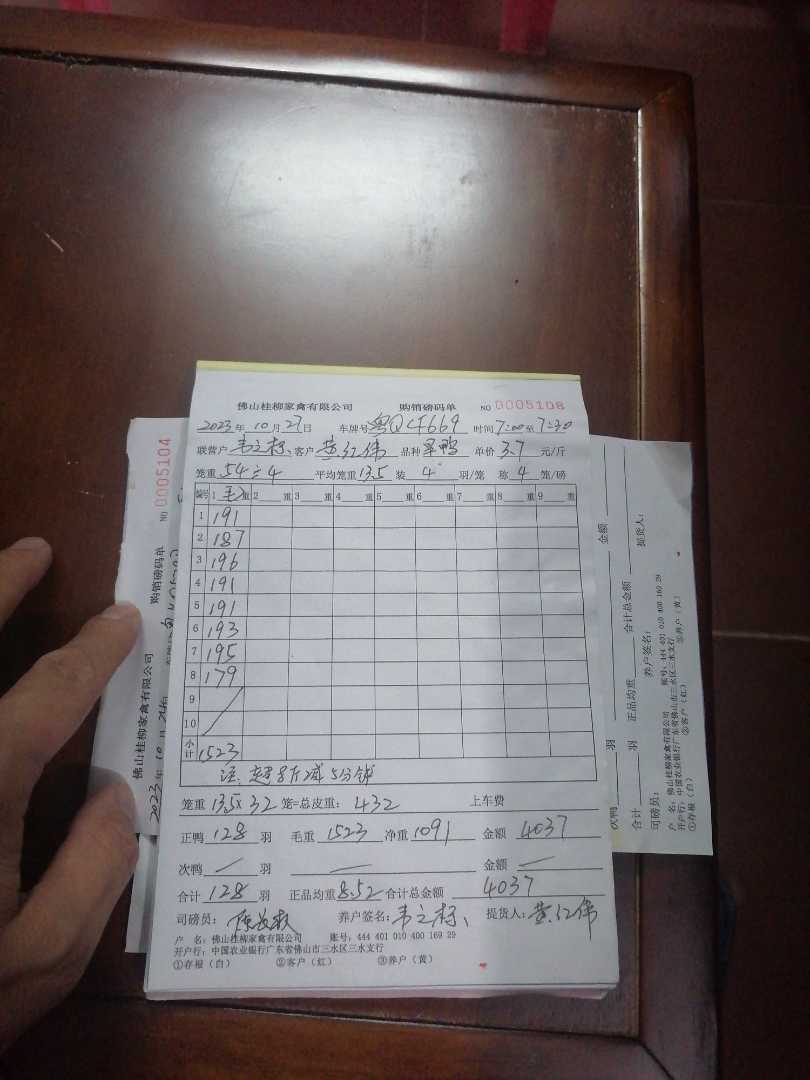 佛山桂柳家禽有限公司 购销磅码单 NO 0005108
2023年10月27日 车牌号 粤QCF669 时间7:00至7:30
联营户 韦之标、客户 黄红伟 品种 单价 3.7 元/斤
笼重 54÷4 平均笼重13.5 装 4 羽/笼 称 4 笼/磅
编号 1 毛重 2 重 3 重 4 重 5 重 6 重 7 重 8 重 9 重
1 191
2 187
3 196
4 191
5 191
6 193
7 195
8 179
9
10
小计 1523
注: 超8斤减5分钱
笼重 13.5x32 笼=总皮重: 432 上车费
正鸭 128 羽 毛重 1523 净重 1091 金额 4037
次鸭 羽 金额
合计 128 羽 正品均重 8.52 合计总金额 4037
司磅员: 养户签名: 韦之标、 提货人: 黄红伟
户 名: 佛山桂柳家禽有限公司 账号: 444 401 010 400 169 29
开户行: 中国农业银行广东省佛山市三水区三水支行
①存根(白) ②客户(红) ③养户(黄)
佛山桂柳家禽有限公司 购销磅码单 NO 0005104
2023年10月
次鸭 羽 金额
合计 羽 正品均重 合计总金额
司磅员: 养户签名: 提货人:
户 名: 佛山桂柳家禽有限公司 账号: 444 401 010 400 169 29
开户行: 中国农业银行广东省佛山市三水区三水支行
①存根(白) ②客户(红) ③养户(黄)